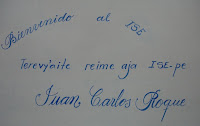 Bienvenido al ISE
Terevy'aite reime aja ISE-pe
Juan Carlos Roque